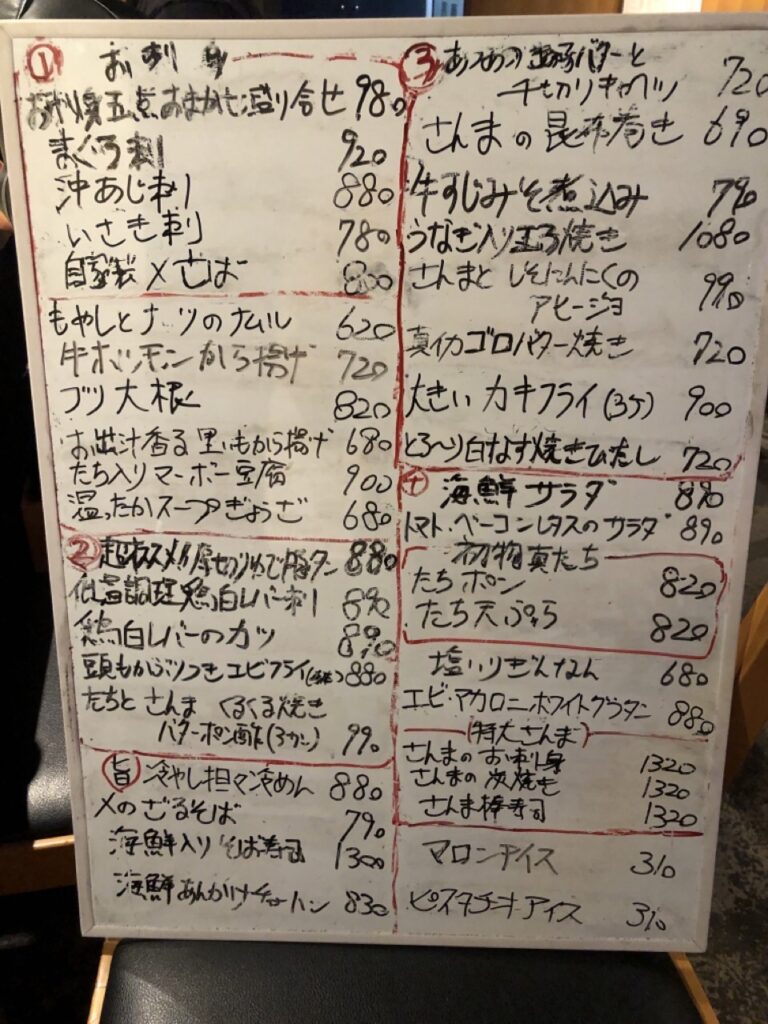 ① お刺身
お刺身五点おまかせ盛り合せ 980
まぐろ刺 920
沖あじ刺 880
いさき刺 780
自家製〆さば 800
もやしとナッツのナムル 620
牛ホルモンから揚げ 720
ブリ大根 820
お出汁香る里いもから揚げ 680
たち入りマーボー豆腐 900
温ったかスープぎょうざ 680
② 超オススメ 厚切りゆで豚タン 880
低温調理鶏白レバー刺し 890
鶏白レバーのカツ 890
頭もかぶりつきエビフライ 880
たちとさんま くるくる焼き
バターポン酢(3カン) 990
旨 冷やし担々冷めん 880
〆のざるそば 790
海鮮入りそば寿司 1300
海鮮あんかけチャーハン 830
③ あつあつ バターと
千切りキャベツ 720
さんまの昆布巻き 690
牛すじみそ煮込み 790
うなぎ入り玉ろ焼き 1080
さんまと しそにんにくの
アヒージョ 990
真イカゴロバター焼き 720
大きいカキフライ(3ケ) 900
とろ〜り白なす焼きひたし 720
④ 海鮮サラダ 890
トマト・ベーコンレタスのサラダ 890
初物真たち
たちポン 820
たち天ぷら 820
塩いりぎんなん 680
エビ・マカロニホワイトグラタン 880
(特大さんま)
さんまのお刺身 1320
さんまの炭焼き 1320
さんま棒寿司 1320
マロンアイス 310
ピスタチオアイス 310